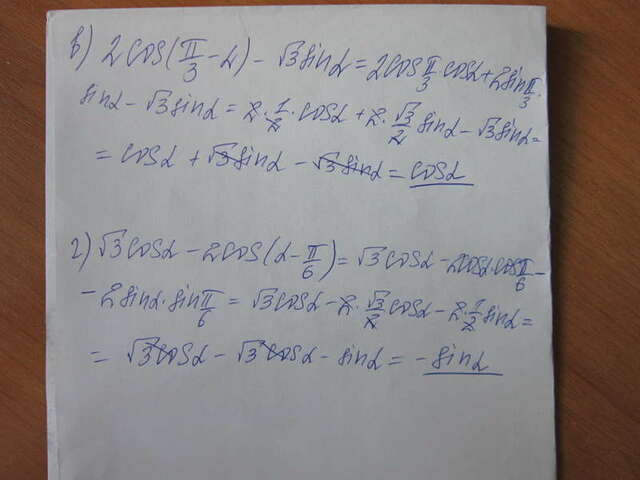 в) 2cos(π/3 - α) - √3 sinα = 2cos π/3 cosα + 2sin π/3 ·
sinα - √3 sinα = 2 · 1/2 · cosα + 2 · √3/2 sinα - √3 sinα =
= cosα + √3 sinα - √3 sinα = cosα
г) √3 cosα - 2cos(α - π/6) = √3 cosα - 2cosα · cos π/6 -
- 2sinα · sin π/6 = √3 cosα - 2 · √3/2 cosα - 2 · 1/2 sinα =
= √3 cosα - √3 cosα - sinα = - sinα